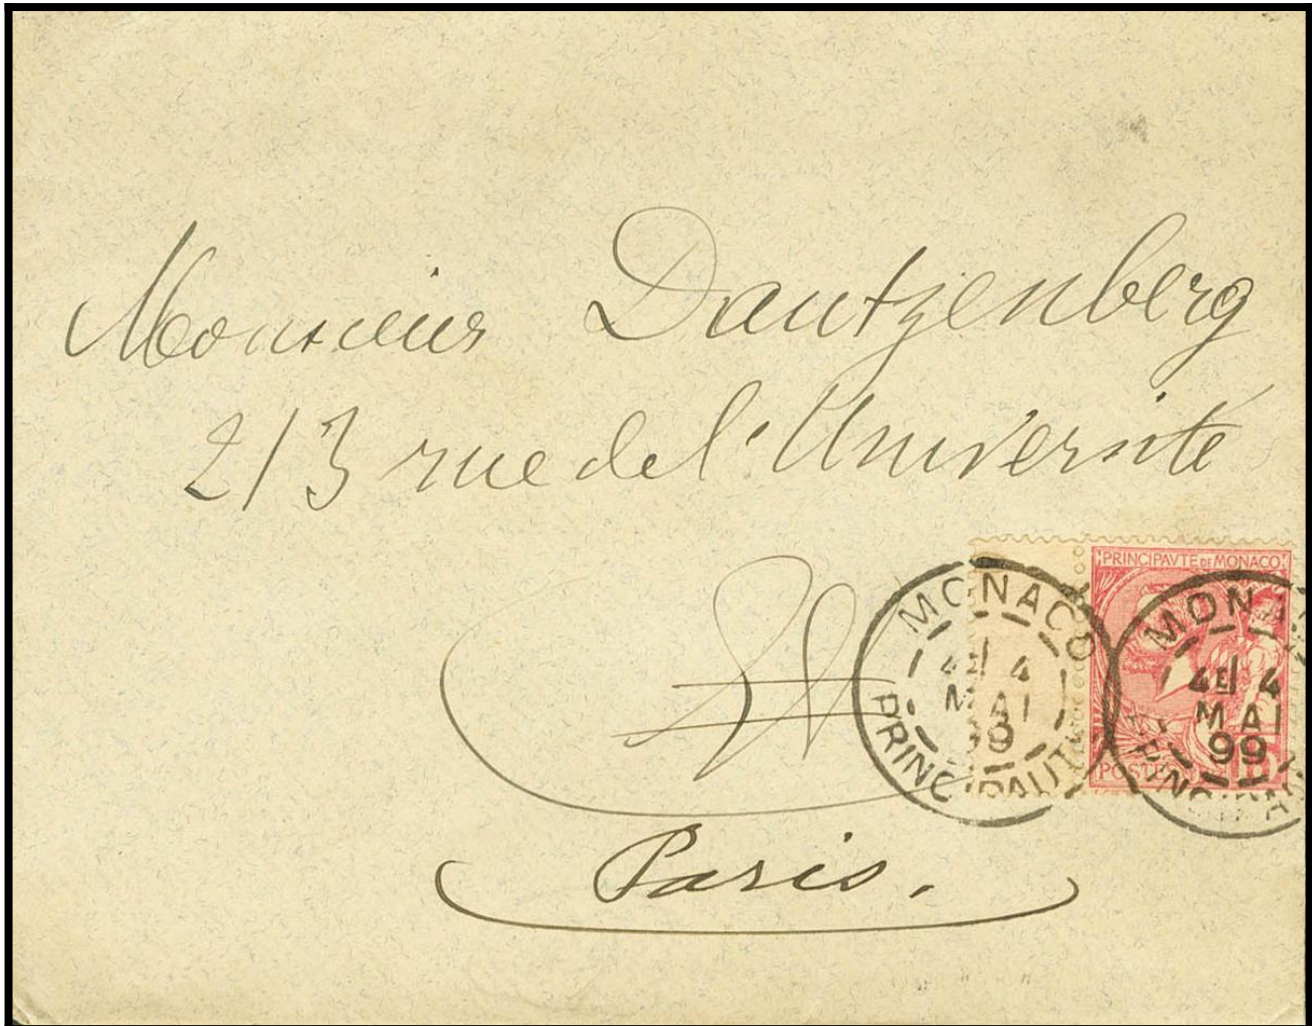 Monsieur Dautzenberg
213 rue de l'Université
Paris.
MONACO
4E 4
MAI
99
PRINCIPAUTÉ
PRINCIPAVTE DE MONACO
POSTES
15
MONA
4E 4
MAI
99
PRINCIPA